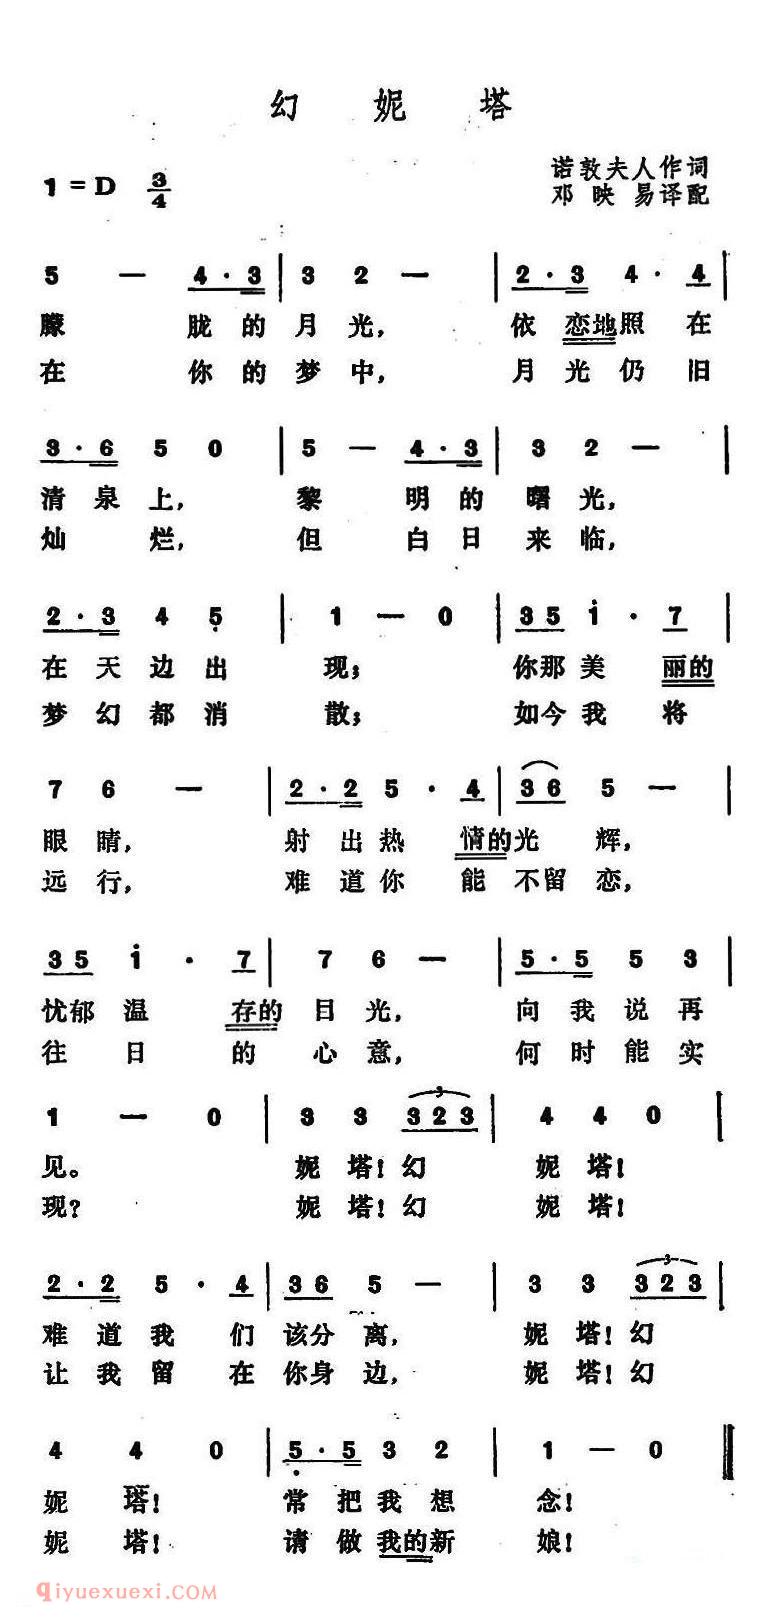 幻 妮 塔
诺敦夫人作词
1=D 3/4
邓 映 易译配
5 — 4·3 | 3 2 — | 2·3 4·4 |
朦 胧的月光, 依恋地照在
在 你的梦中, 月光仍旧
3·6 5 0 | 5 — 4·3 | 3 2 — |
清泉上, 黎 明的曙光,
灿 烂, 但 白日来临,
2·3 4 5 | 1 — 0 | 35 i·7 |
在天边出 现; 你那美 丽的
梦幻都消 散; 如今我 将
7 6 — | 2·2 5·4 | 36 5 — |
眼睛, 射出热 情的光辉,
远行, 难道你 能 不留恋,
35 i·7 | 7 6 — | 5·5 5 3 |
忧郁温 存的目光, 向我说再
往 日 的 心意, 何时能实
1 — 0 | 3 3 323 | 4 4 0 |
见。 妮塔!幻 妮塔!
现? 妮塔!幻 妮塔!
2·2 5·4 | 36 5 — | 3 3 323 |
难道我 们该分离, 妮塔!幻
让我留 在你身边, 妮塔!幻
4 4 0 | 5·5 3 2 | 1 — 0 ‖
妮 塔! 常把我想 念!
妮 塔! 请做我的新 娘!
qiyuexuexi.com